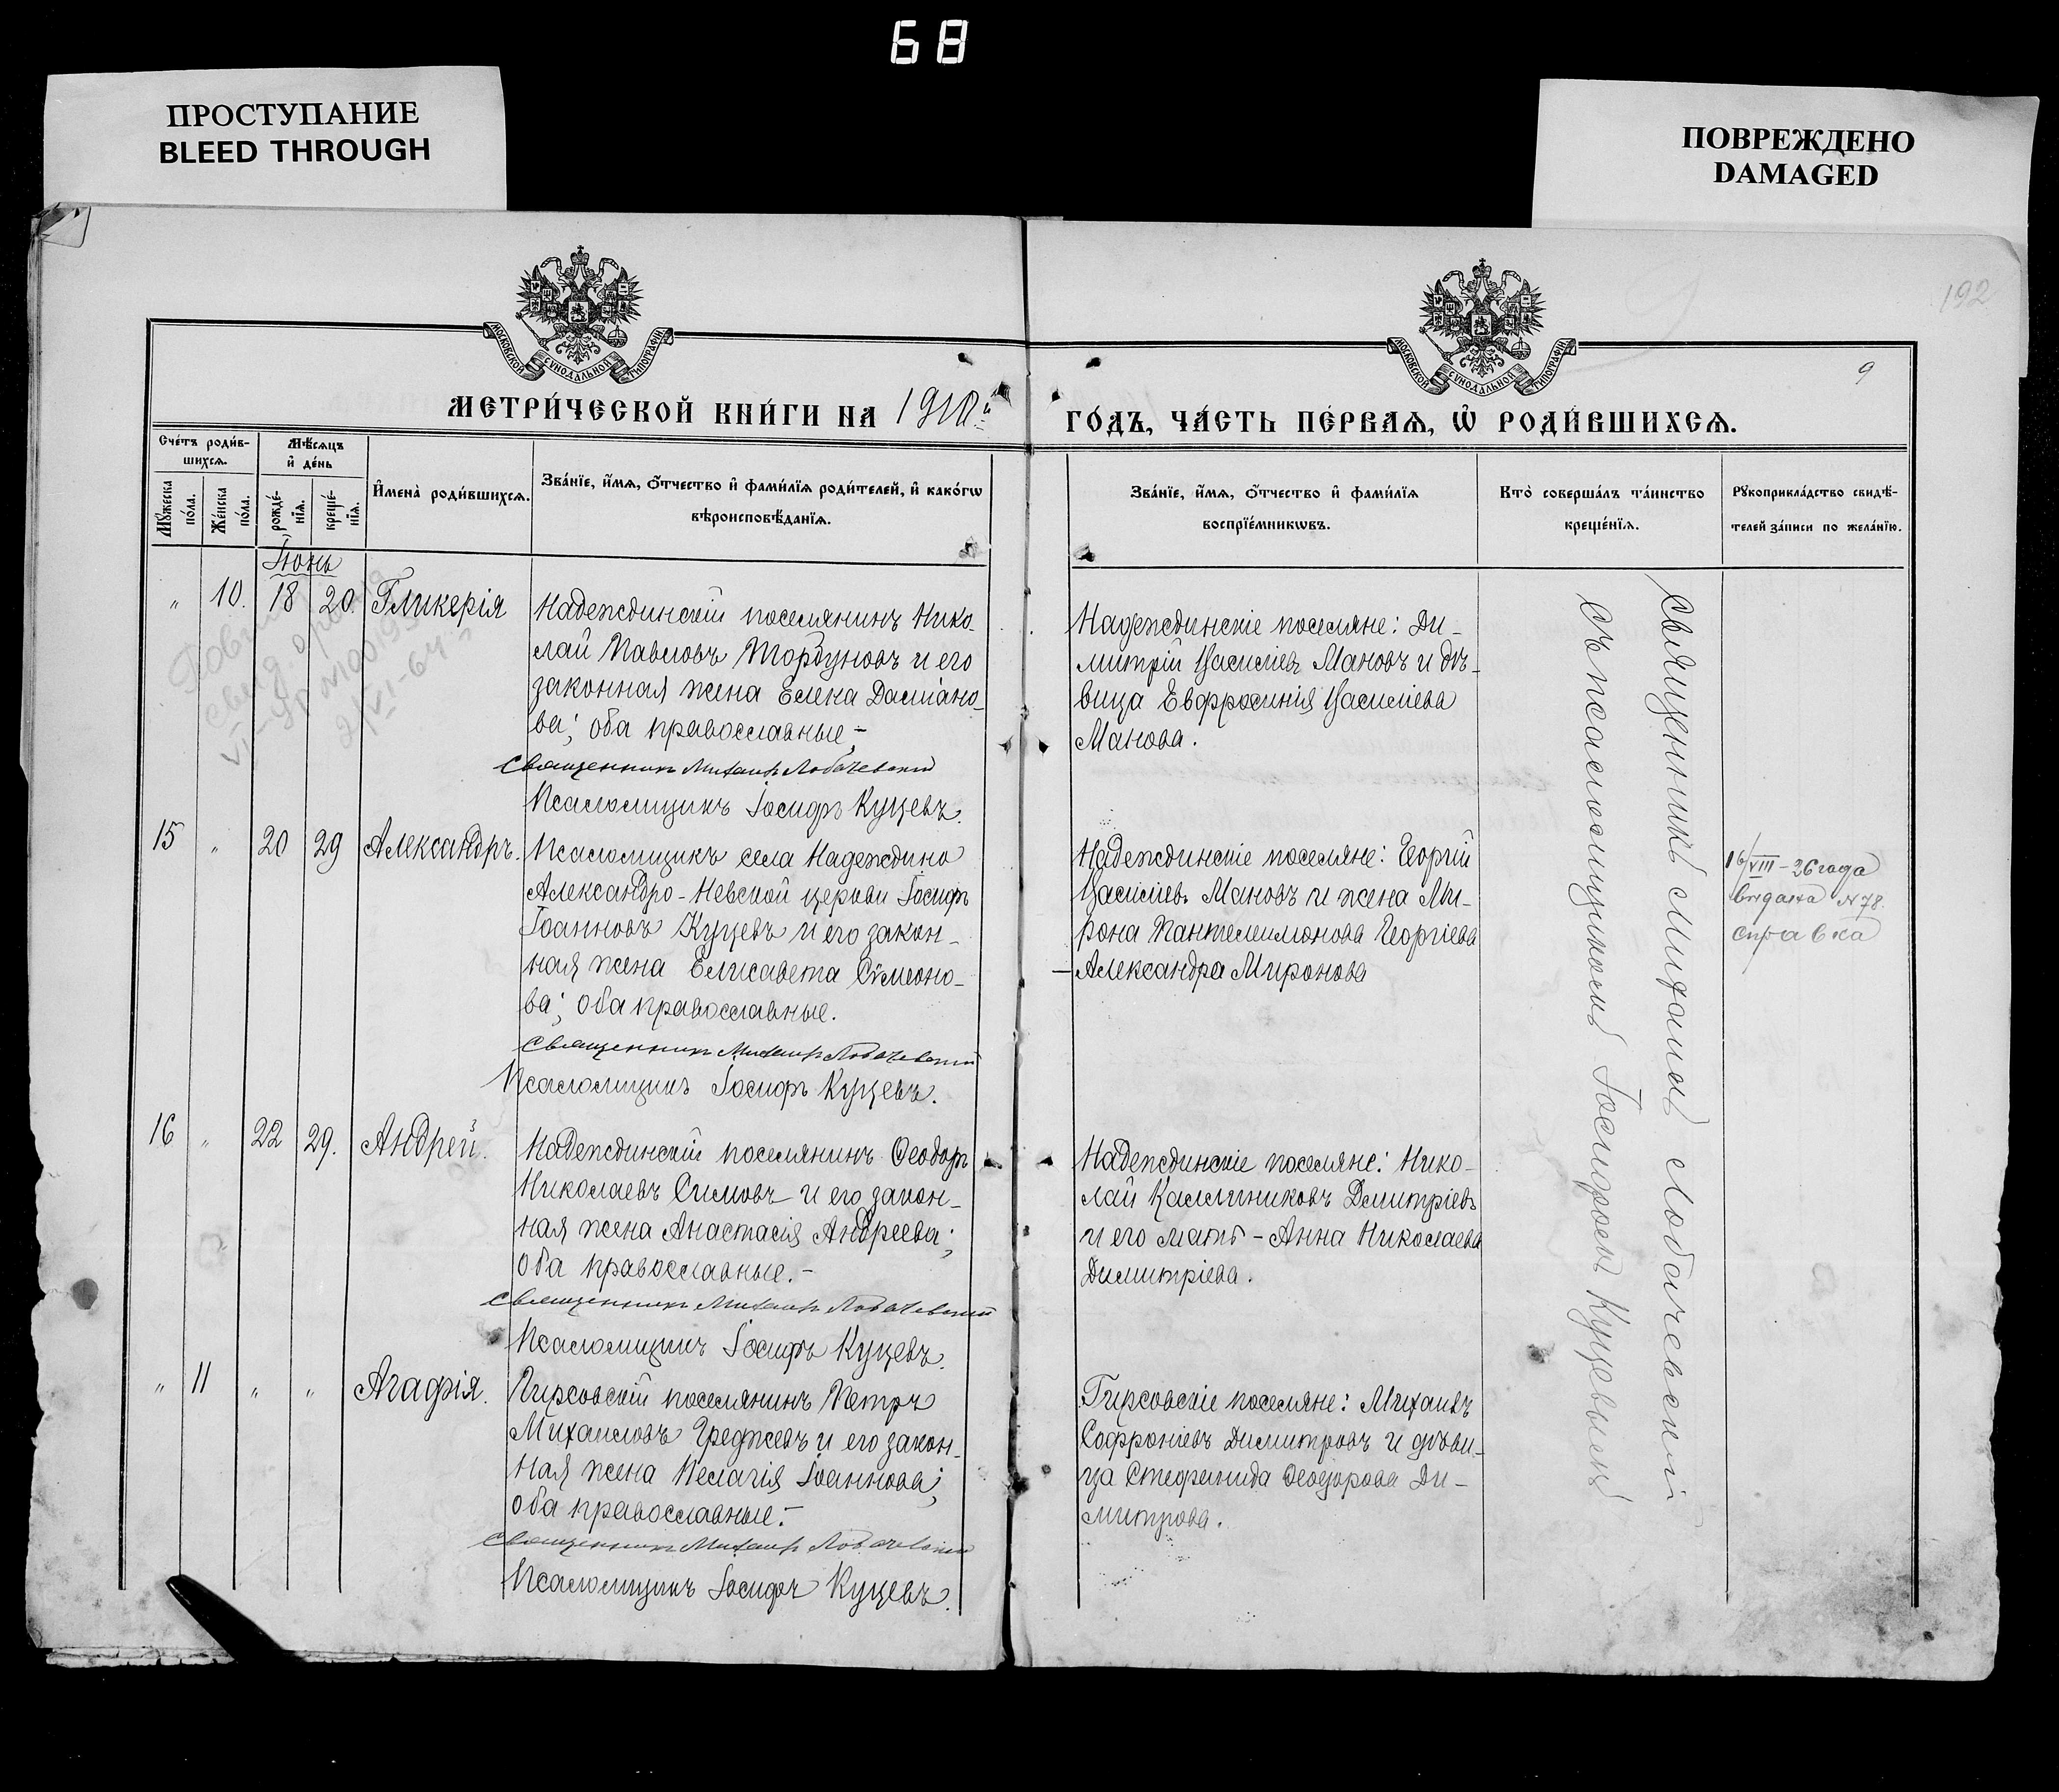 68
ПРОСТУПАНИЕ
BLEED THROUGH
ПОВРЕЖДЕНО
DAMAGED
192
МОСКОВСКОЙ СѴНОДАЛЬНОЙ ТИПОГРАФІИ
МОСКОВСКОЙ СѴНОДАЛЬНОЙ ТИПОГРАФІИ
9
МЕТРИ́ЧЕСКОЙ КНИ́ГИ НА 1910й
ГО́ДЪ, ЧА́СТЬ ПЕ́РВАѦ, Ѽ РОДИ́ВШИХСѦ.
Сче́тъ роди́в-
шихсѧ.
Мѣ́сѧцъ
и҆ де́нь
Мꙋ́жеска
по́ла.
Же́нска
по́ла.
рожде́-
нїѧ.
креще́-
нїѧ.
И҆мена̀ роди́вшихсѧ.
Зва́нїе, и҆́мѧ, ѻ҆́тчество и҆ фами́лїѧ роди́телей, и҆ како́гѡ
вѣроисповѣ́данїѧ.
Зва́нїе, и҆́мѧ, ѻ҆́тчество и҆ фами́лїѧ
воспрїе́мникѡвъ.
Кто̀ соверша́лъ та́инство
креще́нїѧ.
Рꙋкоприкла́дство свидѣ́-
телей за́писи по жела́нїю.
Іюнь
" 10. 18 20. Гликерія
Надеждинскій поселянинъ Нико-
лай Павловъ Торбуновъ и его
законная жена Елена Даміано-
ва; оба православные.-
Священникъ Михаилъ Лобачевский
Псаломщикъ Іосифъ Куцевъ.
Надеждинскіе поселяне: Ди-
митрій Василіевъ Мановъ и дѣ-
вица Евфросинія Василіева
Манова.
свид.
VI-ЯР №100195
2/VI-64
15 " 20 29 Александръ.
Псаломщикъ села Надеждино
Александро-Невской церкви Іосифъ
Іоанновъ Куцевъ и его закон-
ная жена Елисавета Сѵмеоно-
ва; оба православные.
Священникъ Михаилъ Лобачевский
Псаломщикъ Іосифъ Куцевъ.
Надеждинскіе поселяне: Георгій
Василіевъ Мановъ и жена Ми-
рона Пантелеимонова Георгіева
- Александра Миронова
16/VIII-26 года
выдана №78.
справка
16 " 22 29. Андрей.
Надеждинскій поселянинъ Ѳеодоръ
Николаевъ Симовъ и его закон-
ная жена Анастасія Андреева;
оба православные.-
Священникъ Михаилъ Лобачевский
Псаломщикъ Іосифъ Куцевъ.
Надеждинскіе поселяне: Нико-
лай Каллиниковъ Димитріевъ
и его мать - Анна Николаева
Димитріева.
" 11 " " Агафія.
Гирсовскій поселянинъ Петръ
Михаиловъ Греджевъ и его закон-
ная жена Пелагія Іоаннова;
оба православные.-
Священникъ Михаилъ Лобачевский
Псаломщикъ Іосифъ Куцевъ.
Гирсовскіе поселяне: Михаилъ
Софроніевъ Димитровъ и дѣви-
ца Стефанида Ѳеодорова Ди-
митрова.
Священникъ Михаилъ Лобачевскій
съ псаломщикомъ Іосифомъ Куцевымъ